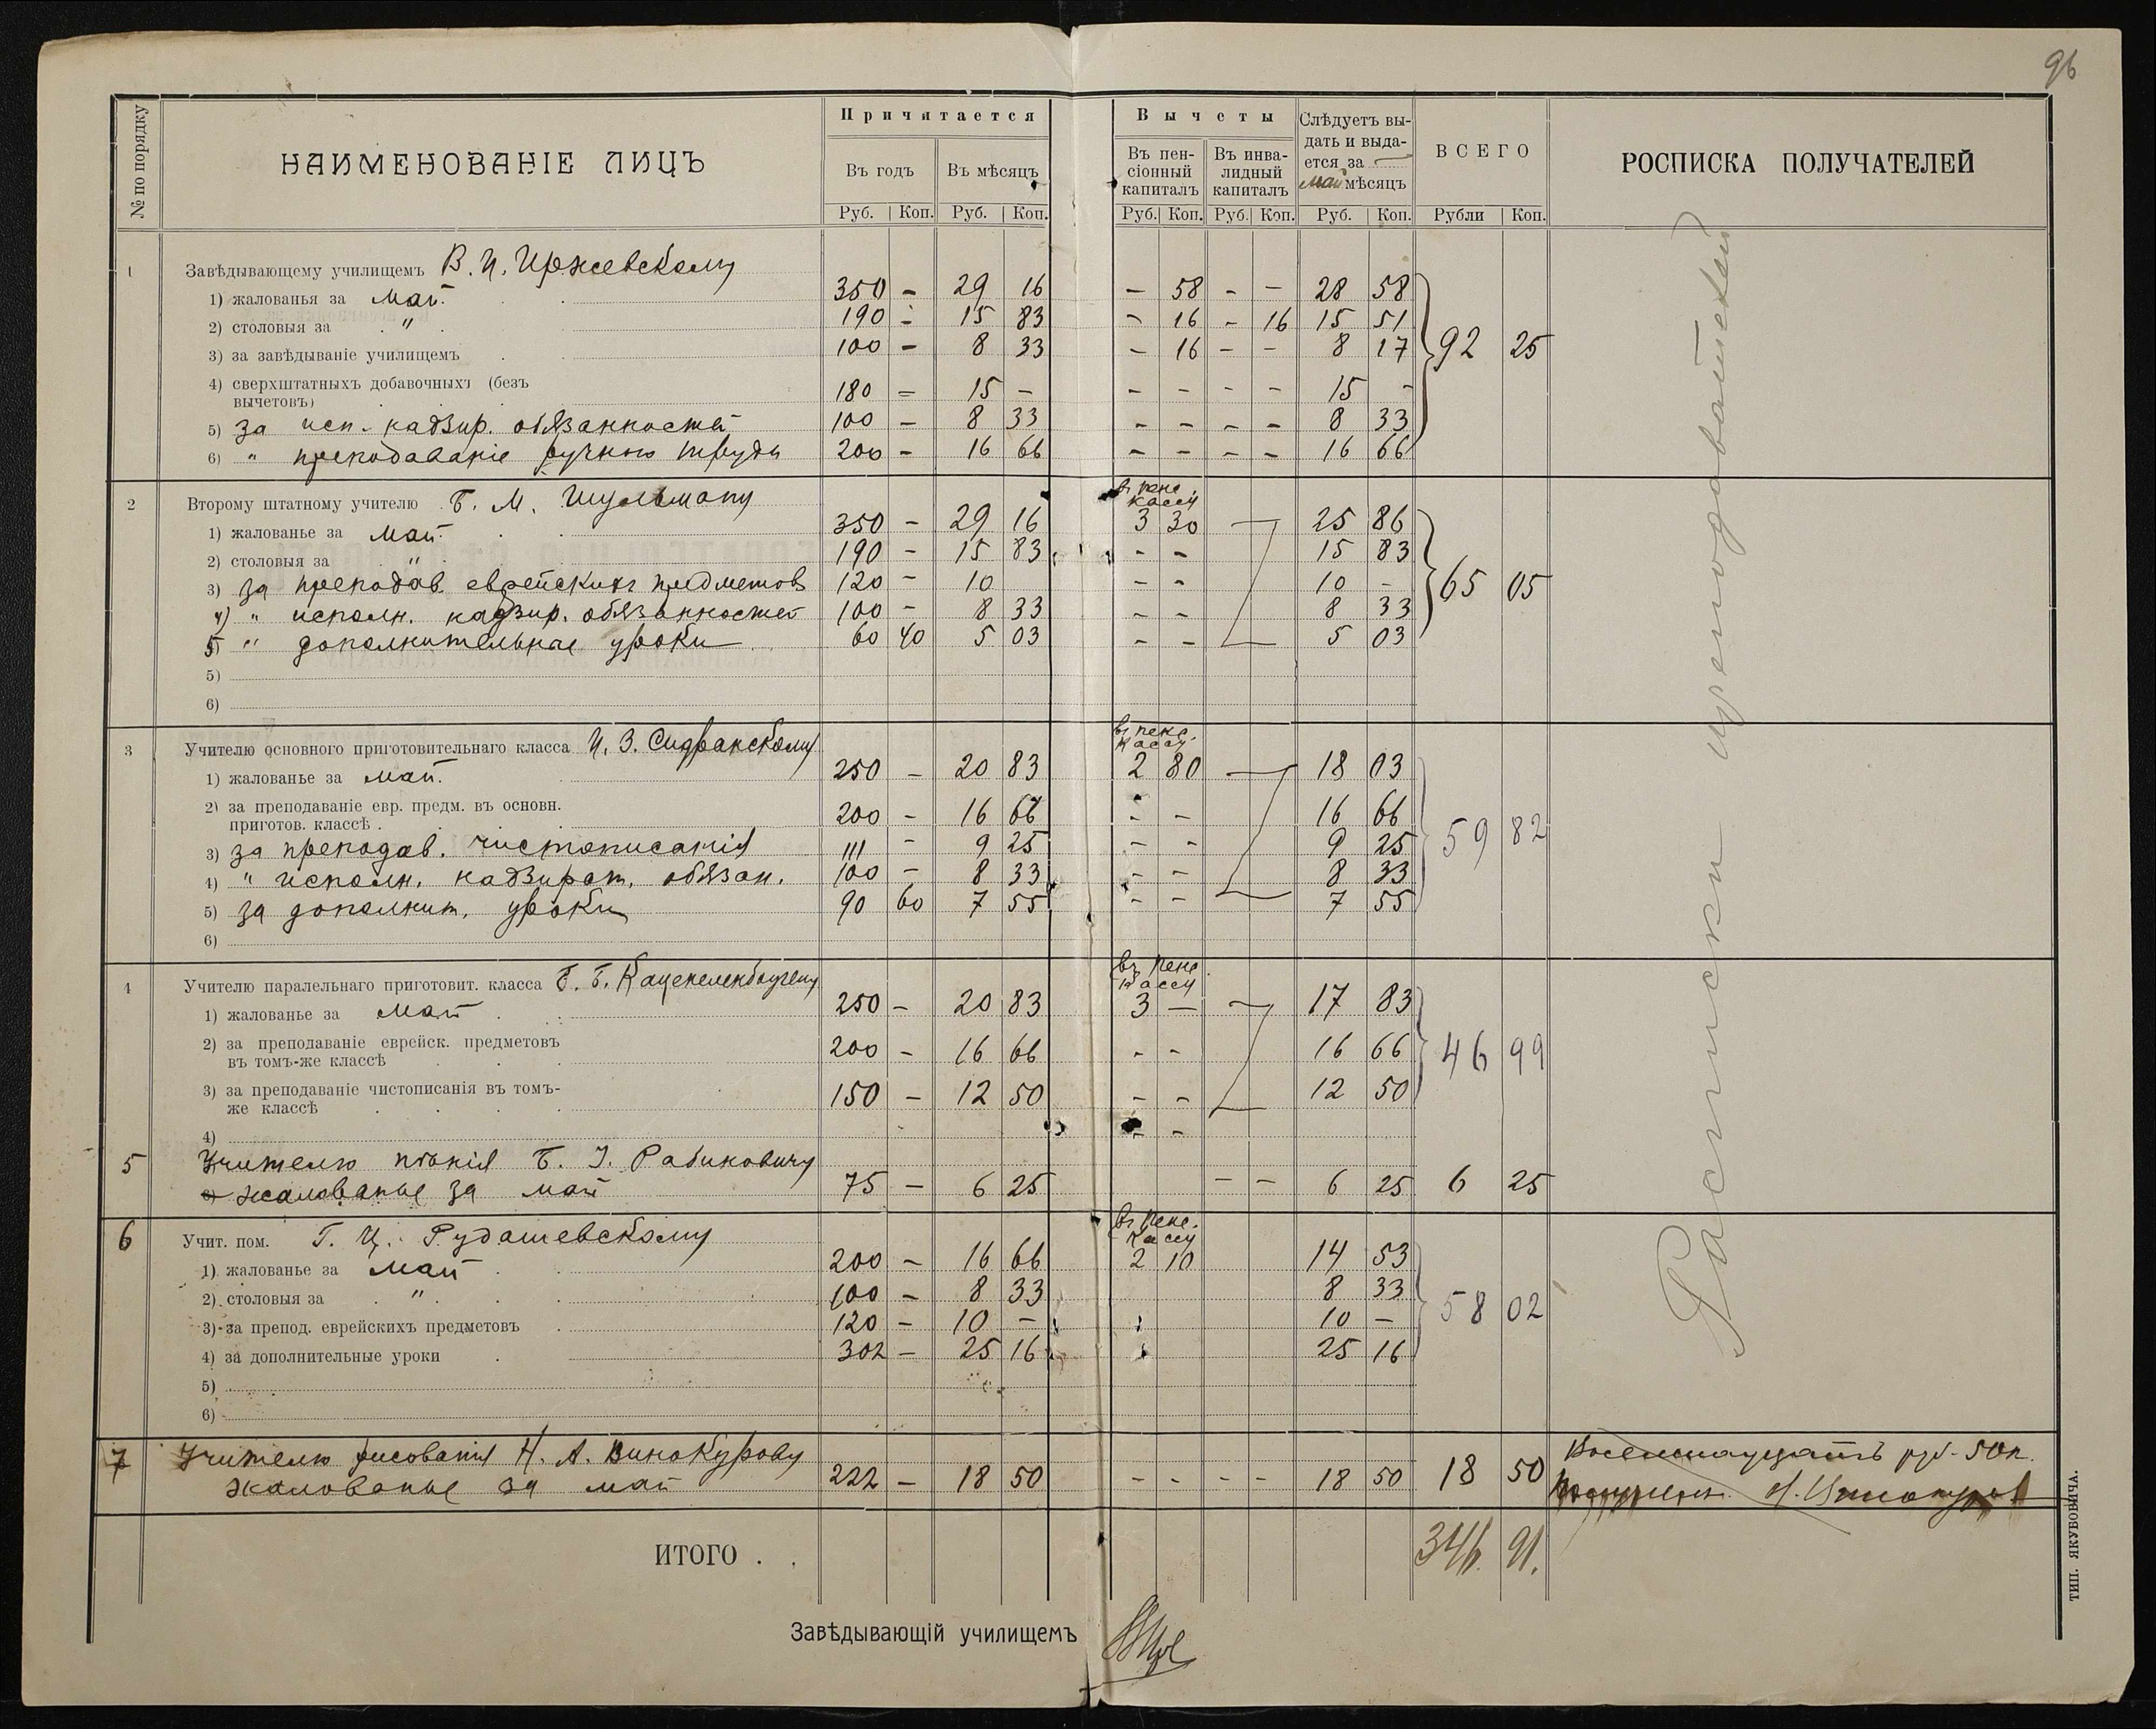 96
№ по порядку
НАИМЕНОВАНІЕ ЛИЦЪ
Причитается
Въ годъ
Въ мѣсяцъ
Руб. Коп. Руб. Коп.
Вычеты
Въ пен-
сіонный
капиталъ
Въ инва-
лидный
капиталъ
Руб. Коп. Руб. Коп.
Слѣдуетъ вы-
дать и выда-
ется за
май мѣсяцъ
Руб. Коп.
ВСЕГО
Рубли Коп.
РОСПИСКА ПОЛУЧАТЕЛЕЙ
1 Завѣдывающему училищемъ В. И. Иржевскому
1) жалованья за май. 350 - 29 16 - 58 - - 28 58
2) столовыя за " 190 - 15 83 - 16 - 16 15 51
3) за завѣдываніе училищемъ 100 - 8 33 - 16 - - 8 17 92 25
4) сверхштатныхъ добавочныхъ (безъ
вычетовъ) 180 - 15 - - - - - 15 -
5) за исп. надзир. обязанностей 100 - 8 33 - - - - 8 33
6) " преподаваніе ручного труда 200 - 16 66 - - - - 16 66
2 Второму штатному учителю Б. М. Шульману въ пенс. кассу
1) жалованье за май. 350 - 29 16 3 30 25 86
2) столовыя за " 190 - 15 83 - - 15 83
3) за преподав. еврейскихъ предметовъ 120 - 10 - - 10 - 65 05
4) " исполн. надзир. обязанностей 100 - 8 33 - - 8 33
5 " дополнительные уроки 60 40 5 03 - - 5 03
5)
6)
3 Учителю основного приготовительнаго класса И. З. Сидранскому въ пенс. кассу
1) жалованье за май. 250 - 20 83 2 80 18 03
2) за преподаваніе евр. предм. въ основн.
приготов. классѣ. 200 - 16 66 - - 16 66
3) за преподав. чистописанія 111 - 9 25 - - 9 25 59 82
4) " исполн. надзират. обязан. 100 - 8 33 - - 8 33
5) за дополнит. уроки 90 60 7 55 - - 7 55
6)
4 Учителю паралельнаго приготовит. класса въ пенс. кассу
1) жалованье за май 250 - 20 83 3 - 17 83
2) за преподаваніе еврейск. предметовъ
въ томъ-же классѣ 200 - 16 66 - - 16 66 46 99
3) за преподаваніе чистописанія въ томъ-
же классѣ 150 - 12 50 - - 12 50
4) - -
5 Учителю пѣнія Б. І. Рабиновичу
жалованье за май 75 - 6 25 - - 6 25 6 25
6 Учит. пом. Г. Ц. Рудашевскому въ пенс. кассу
1) жалованье за май 200 - 16 66 2 10 14 53
2) столовыя за " 100 - 8 33 8 33
3) за препод. еврейскихъ предметовъ 120 - 10 - 10 - 58 02
4) за дополнительные уроки 302 - 25 16 25 16
5)
6)
7 Учителю рисованія Н. А. Винокурову
жалованье за май 222 - 18 50 - - - - 18 50 18 50
Восемнадцать руб. 50 к.
ИТОГО . . 346. 91.
Завѣдывающій училищемъ
Расписки преподавателей
ТИП. ЯКУБОВИЧА.